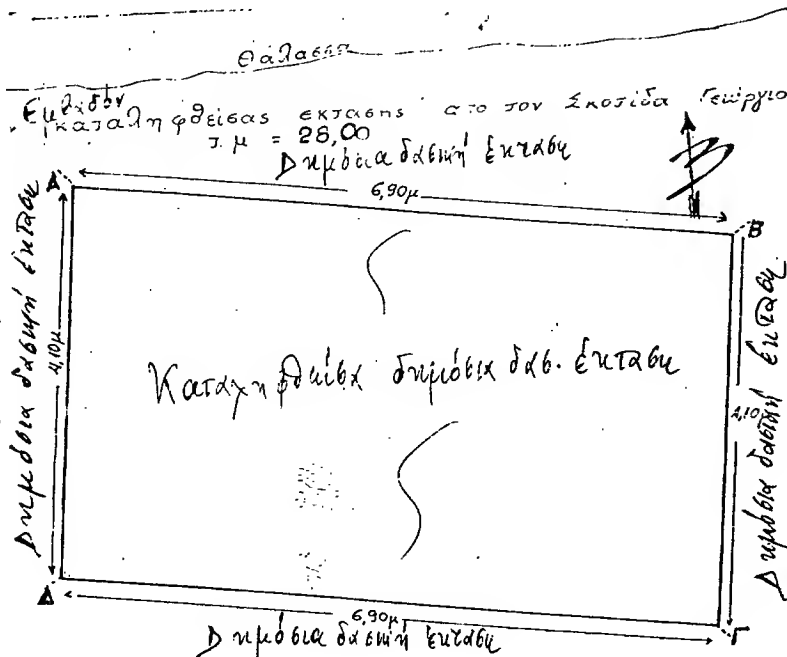 Θάλασσα
Εμβαδόν
καταληφθείσας εκτασης απο τον Σκοτίδα Γεώργιο
τ.μ = 28,00
Δημόσια δασική έκταση
6,90μ
Α
Β
Δημόσια δασική έκταση
4,10μ
Καταληφθείσα δημόσια δας. έκταση
4,10μ
Δημόσια δασική έκταση
Δ
Γ
6,90μ
Δημόσια δασική έκταση